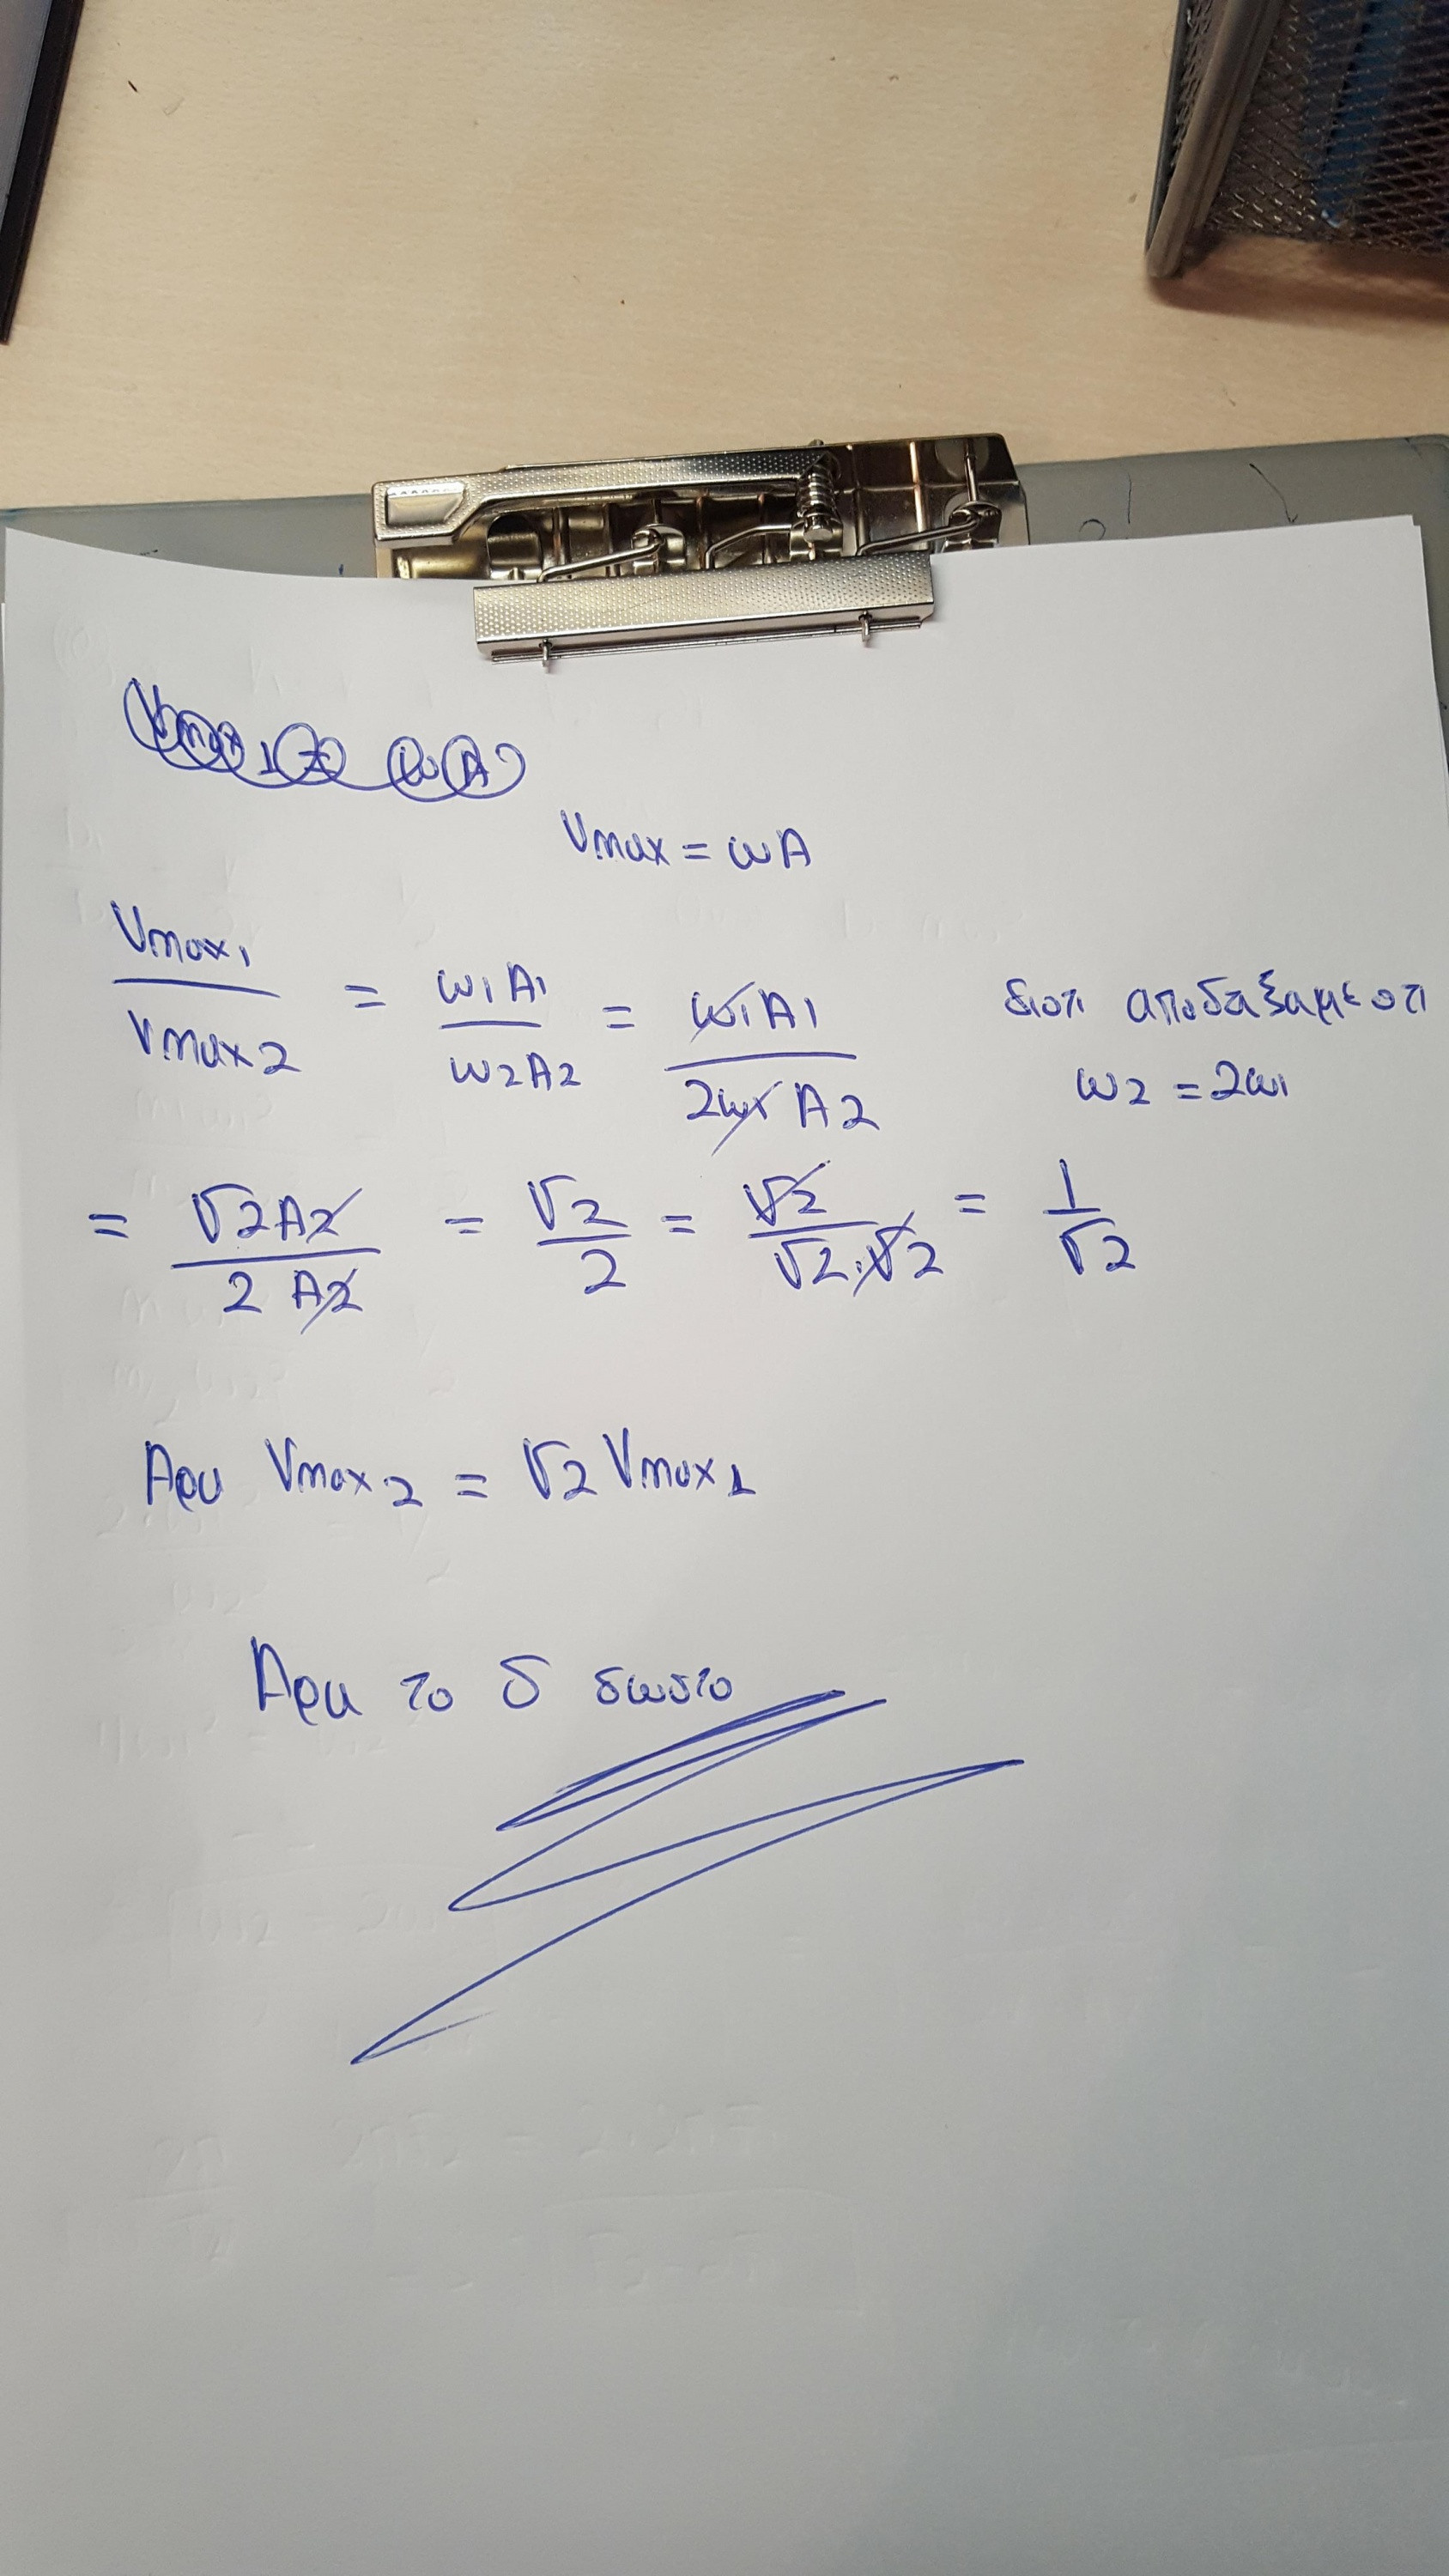 Vmax = ωA
Vmax₁ / Vmax2 = ω₁A₁ / ω2A2 = ω₁A₁ / 2ω₁A2 διοτι αποδειξαμε οτι
ω2 = 2ω₁
= √2A2 / 2A2 = √2 / 2 = √2 / √2.√2 = 1 / √2
Αρα Vmax2 = √2 Vmax1
Αρα το δ σωστο